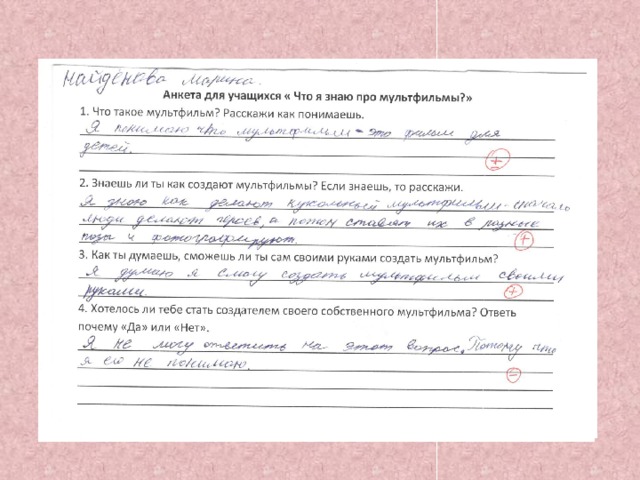 Найдёнова Марина.
Анкета для учащихся « Что я знаю про мультфильмы?»
1. Что такое мультфильм? Расскажи как понимаешь.
Я понимаю что мультфильм - это фильм для
детей.
±
2. Знаешь ли ты как создают мультфильмы? Если знаешь, то расскажи.
Я знаю как делают кукольный мультфильм - сначала
люди делают героев, а потом ставят их в разные
позы и фотографируют.
+
3. Как ты думаешь, сможешь ли ты сам своими руками создать мультфильм?
Я думаю я смогу создать мультфильм своими
руками.
+
4. Хотелось ли тебе стать создателем своего собственного мультфильма? Ответь
почему «Да» или «Нет».
Я не могу ответить на этот вопрос. Потому что
я его не понимаю.
=